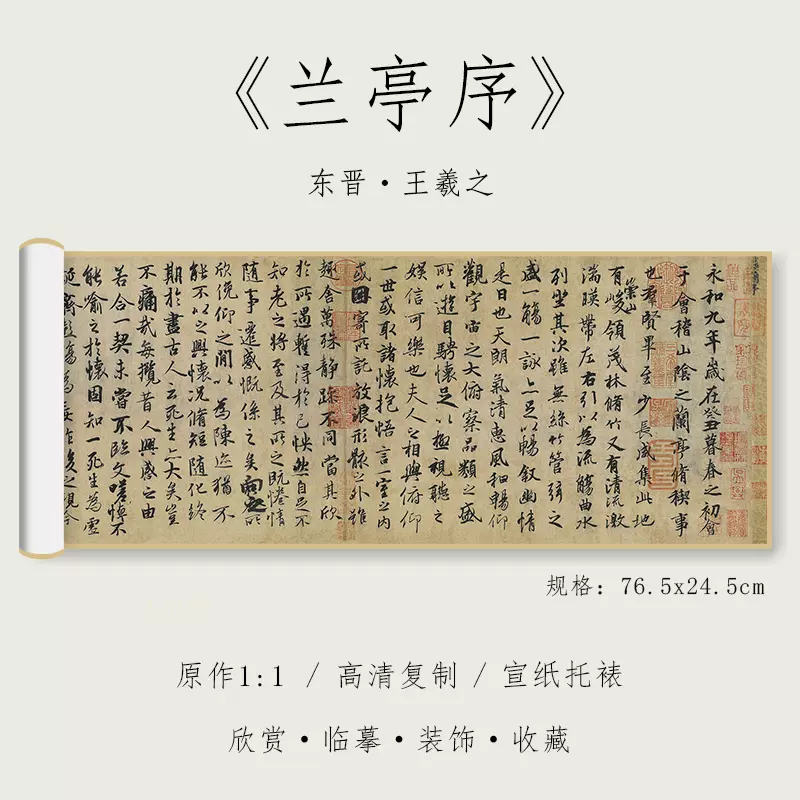 《兰亭序》
东晋·王羲之
永和九年歲在癸丑暮春之初會
于會稽山陰之蘭亭脩稧事
也群賢畢至少長咸集此地
有崇山峻領茂林脩竹又有清流激
湍暎帶左右引以為流觴曲水
列坐其次雖無絲竹管弦之
盛一觴一詠亦足以暢敘幽情
是日也天朗氣清惠風和暢仰
觀宇宙之大俯察品類之盛
所以遊目騁懷足以極視聽之
娛信可樂也夫人之相與俯仰
一世或取諸懷抱悟言一室之內
或因寄所託放浪形骸之外雖
趣舍萬殊靜躁不同當其欣
於所遇蹔得於己怏然自足不
知老之將至及其所之既惓情
隨事遷感慨係之矣向之所
欣俛仰之閒以為陳迹猶不
能不以之興懷況脩短隨化終
期於盡古人云死生亦大矣豈
不痛哉每攬昔人興感之由
若合一契未嘗不臨文嗟悼不
能喻之於懷固知一死生為虛
誕齊彭殤為妄作後之視今
规格：76.5x24.5cm
原作1:1 / 高清复制 / 宣纸托裱
欣赏·临摹·装饰·收藏